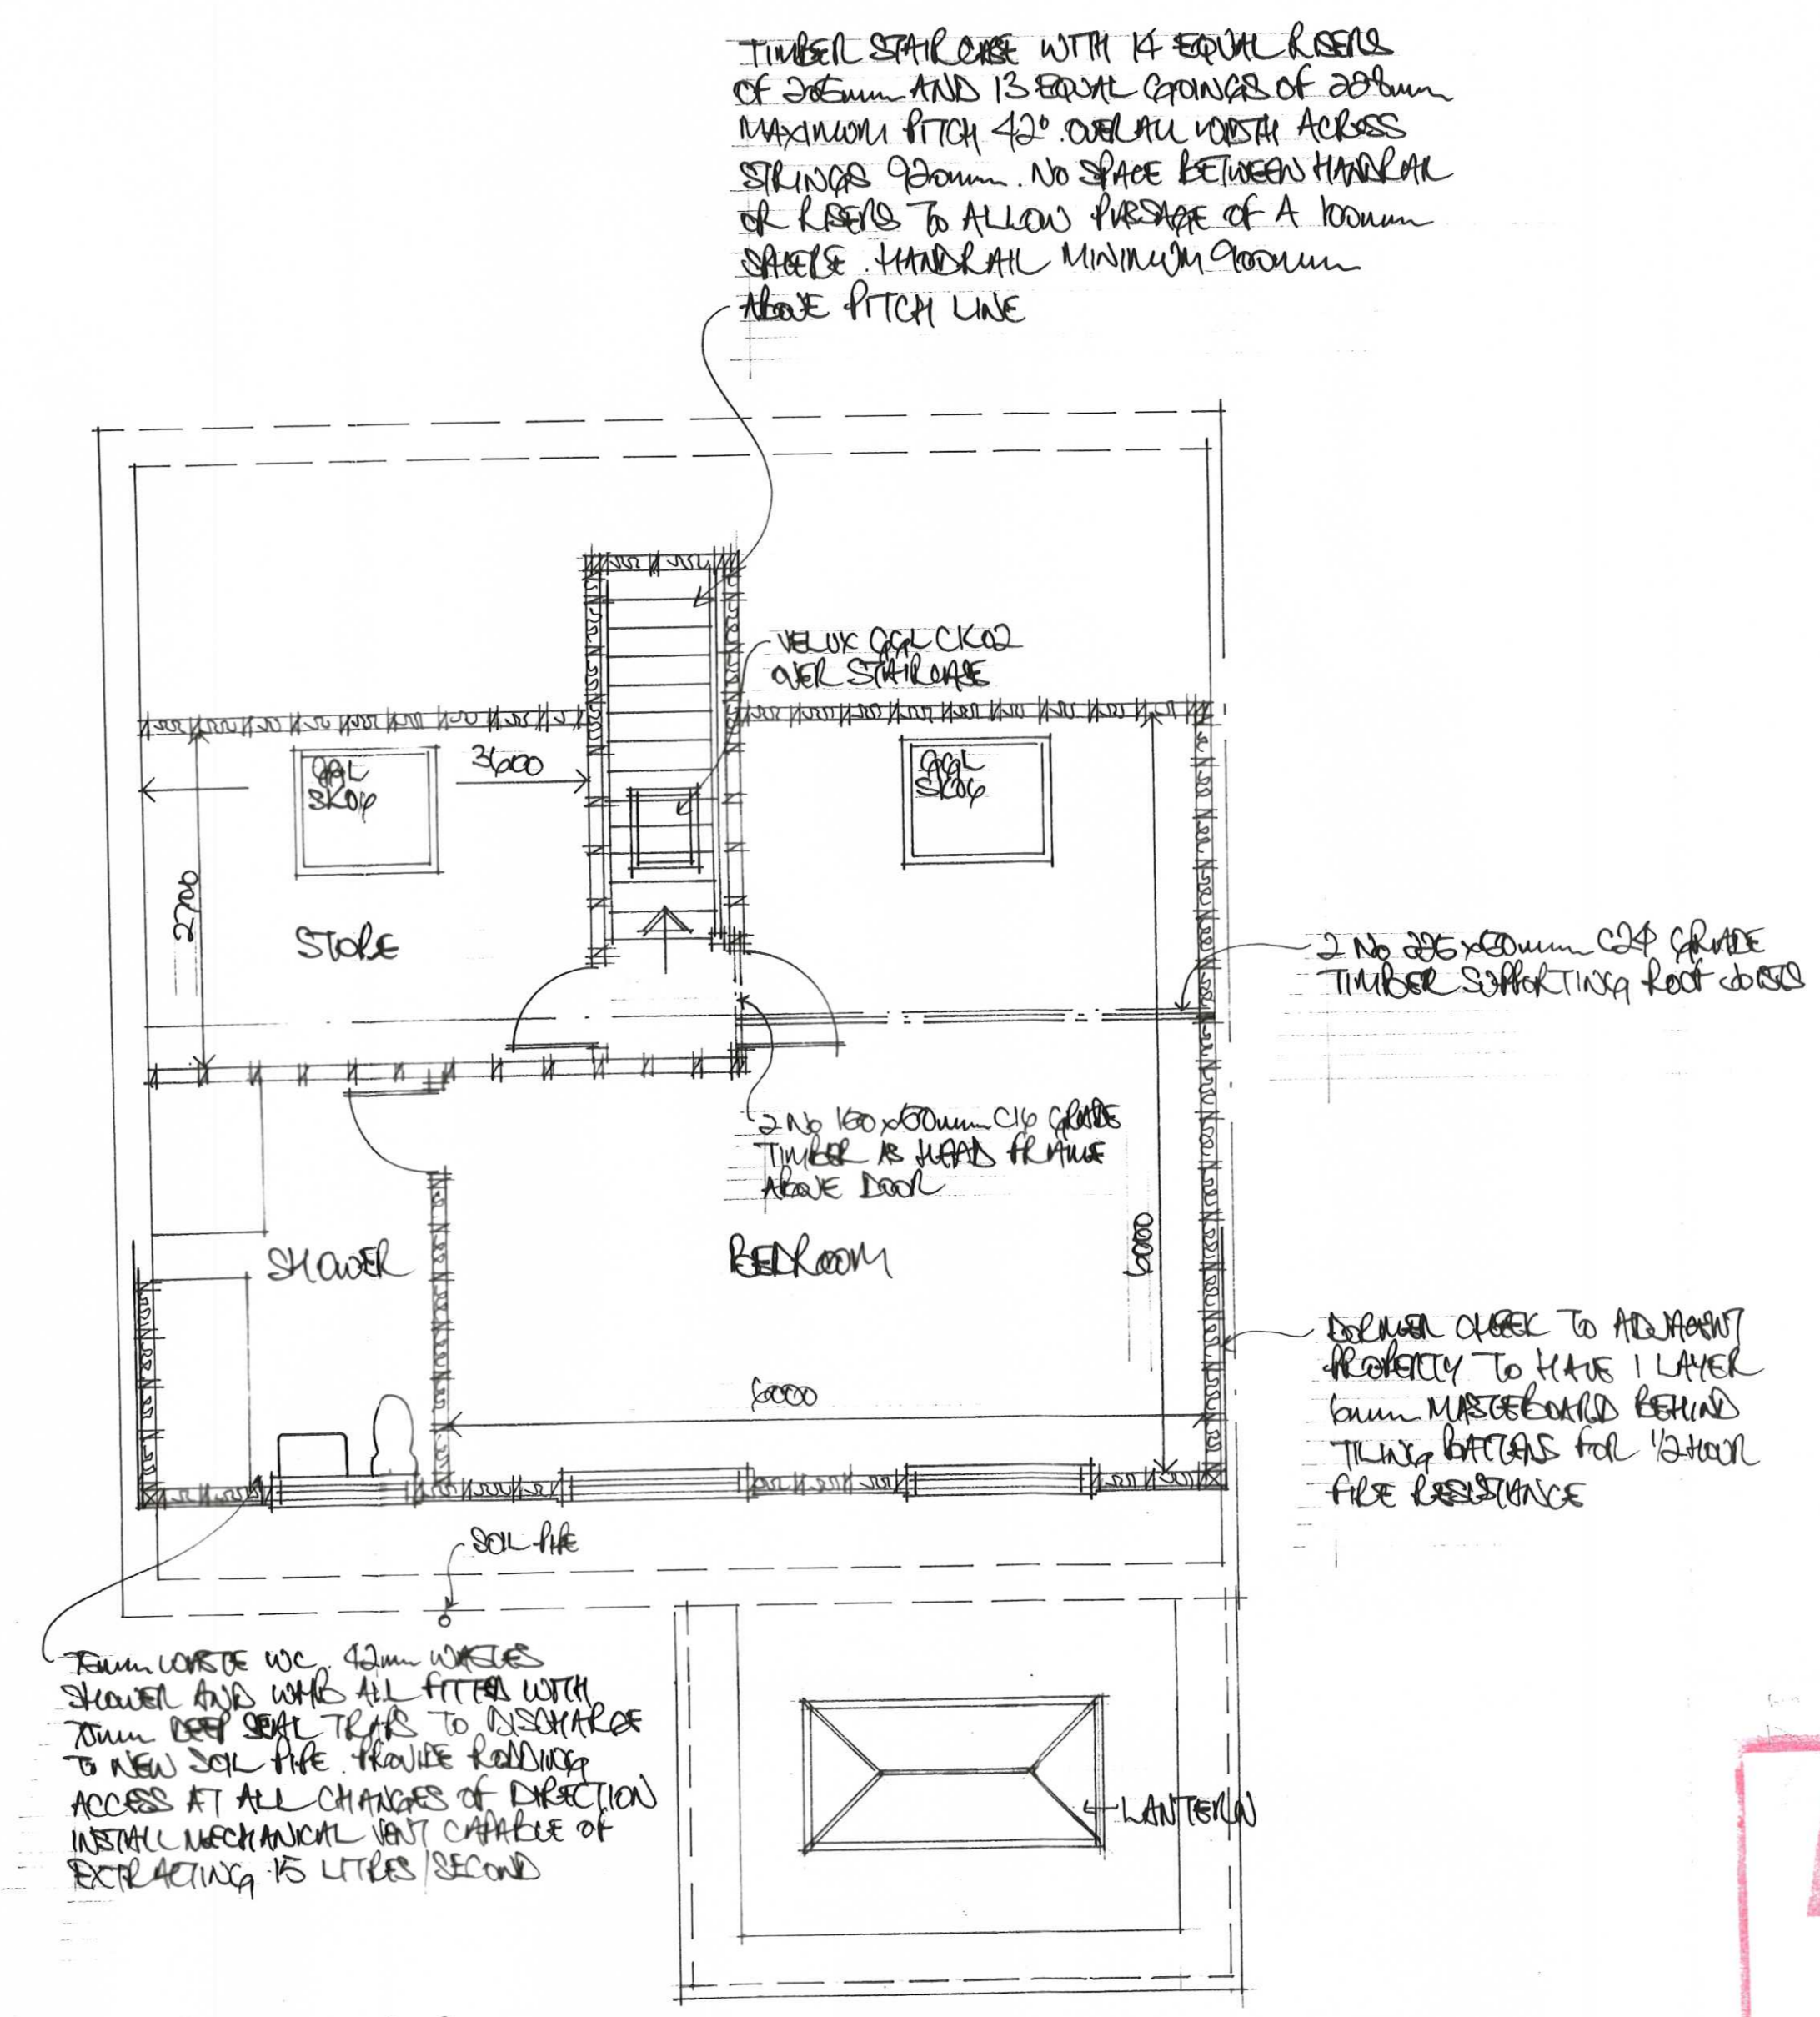 TIMBER STAIRCASE WITH 14 EQUAL RISERS
OF 205mm AND 13 EQUAL GOINGS OF 228mm
MAXIMUM PITCH 42° OVERALL WIDTH ACROSS
STRINGS 920mm. NO SPACE BETWEEN HANDRAIL
OR RISERS TO ALLOW PASSAGE OF A 100mm
SPHERE. HANDRAIL MINIMUM 900mm
ABOVE PITCH LINE
VELUX GGL CK02
OVER STAIRCASE
GGL
SK06
3600
GGL
SK06
2700
STORE
2 No 225x50mm C24 GRADE
TIMBER SUPPORTING ROOF JOISTS
2 No 150x50mm C16 GRADE
TIMBER AS HEAD FRAME
ABOVE DOOR
SHOWER
BEDROOM
6000
6000
DORMER CHEEK TO ADJACENT
PROPERTY TO HAVE 1 LAYER
6mm MASTERBOARD BEHIND
TILING BATTENS FOR 1/2 HOUR
FIRE RESISTANCE
SOIL PIPE
75mm WASTE WC. 42mm WASTES
SHOWER AND WHB ALL FITTED WITH
75mm DEEP SEAL TRAPS TO DISCHARGE
TO NEW SOIL PIPE. PROVIDE RODDING
ACCESS AT ALL CHANGES OF DIRECTION
INSTALL MECHANICAL VENT CAPABLE OF
EXTRACTING 15 LITRES/SECOND
LANTERN